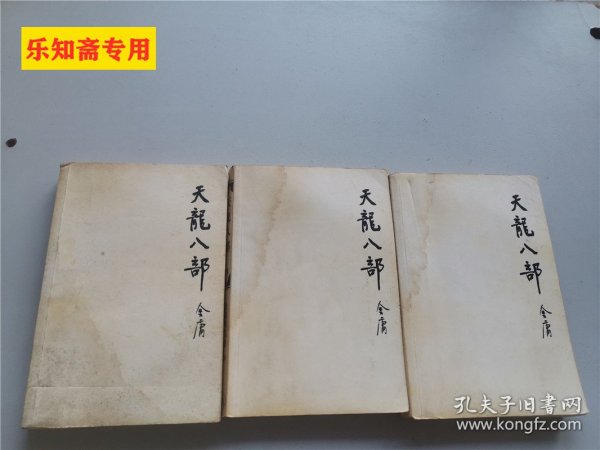 乐知斋专用
天龍八部
金庸
天龍八部
金庸
天龍八部
金庸
孔夫子旧書网
www.kongfz.com